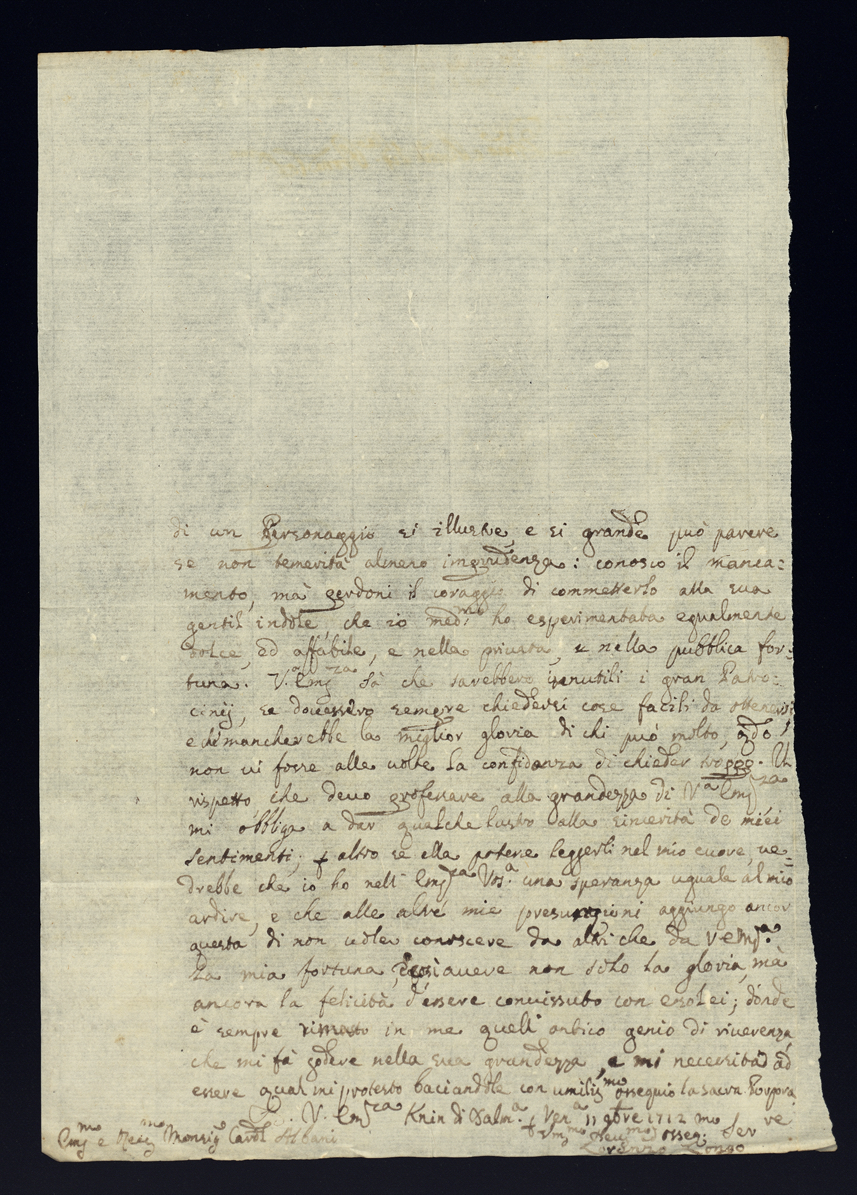 di un Personaggio si illustre, e si grande può parere
se non temerità almeno imprudenza: conosco il manca:
mento, mà perdoni il coraggio di commetterlo alla sua
gentil indole, che io med.mo ho esperimentata egualmente
dolce, ed affabile, e nella privata, e nella pubblica for:
tuna. V.a Em.za sà che sarebbero inutili i gran Patro:
cinij, se dovessero sempre chiedersi cose facili da ottenersi
e che mancherebbe la miglior gloria di chi può molto, qdo
non vi fosse alle volte la confidanza di chieder troppo. Il
rispetto che devo professare alla grandezza di V.a Em.za
mi obbliga a dar qualche lustro alla sincerità de miei
sentimenti; altro se ella potesse leggerli nel mio cuore, ve=
drebbe che io ho nell' Em.za Vos.a una speranza uguale al mio
ardire, e che alle altre mie presunzioni aggiungo ancor
questa di non voler conoscere da altri che da V Em.a
La mia fortuna, avere non solo la gloria, mà
ancora la felicità d'essere convissuto con esso lei; donde
è sempre rimasto in me quell' antico genio di riverenza
che mi fà godere nella sua grandezza, e mi necessita ad
essere qual mi protesto baciandole con umiliss.mo ossequio la sacra Porpora
D. V. Em.za Knin di Dalm.a Ven.a 11 9bre 1712
Em.mo e Rev.mo Monsig.r Card.l Albani
mo re
osseq. Ser
Lorenzo